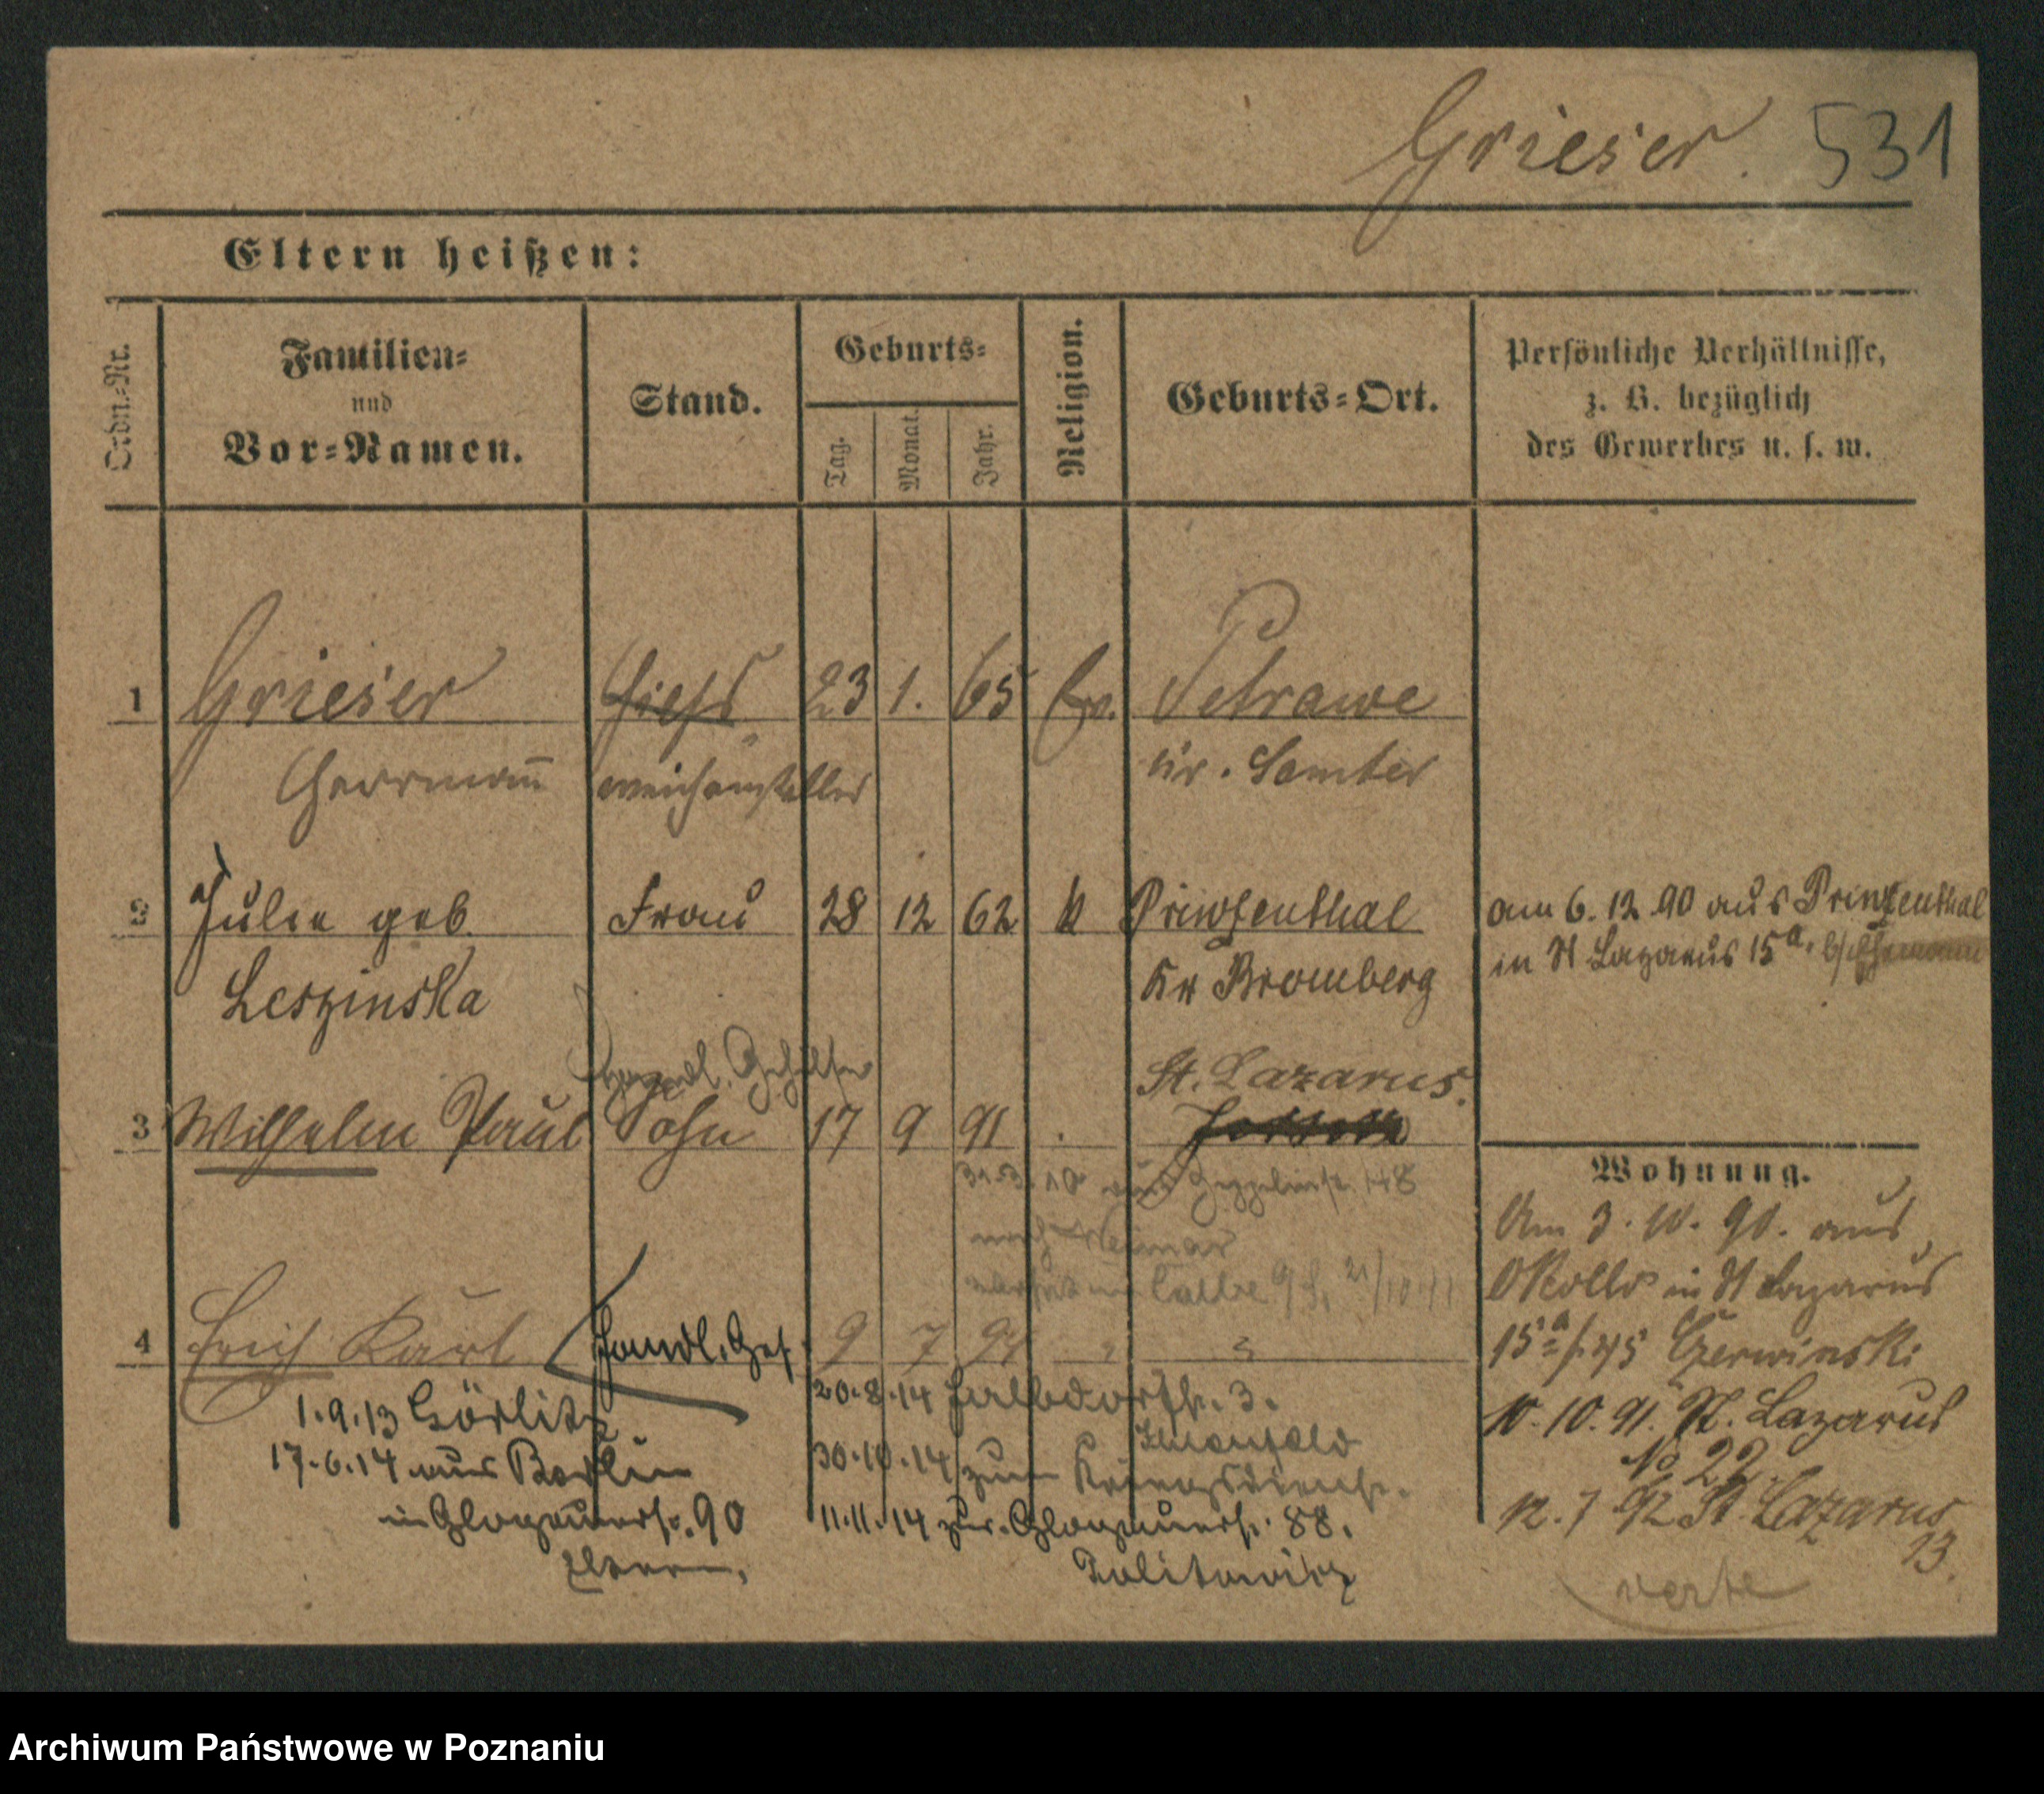 Grieser. 531
Eltern heißen:
Ordn.-Nr.
Familien-
und
Vor-Namen.
Stand.
Geburts-
Tag.
Monat.
Jahr.
Religion.
Geburts-Ort.
Persönliche Verhältnisse,
z. B. bezüglich
des Gewerbes u. s. w.
1 Grieser 23 1. 65 Ev. Petrawe
Herrmañ Kr. Samter
2 Julie geb. Frau 28 12 62 k Prinzenthal
Leszinska Kr Bromberg
am 6. 12. 90 aus Prinzenthal
in St Lazarus 15a.
Gehilfe
St. Lazarus.
3 Wilhelm Paul Sohn 17 9 91
31.3.10 aus
nach Weimar
Calbe a/S. 21/10 11
4 Erich Karl Handl. Geh. 9 7 94 " "
1.9.13 Görlitz
17.6.14 aus Berlin
in Glogauerstr. 90
Eltern.
20.8.14 Halbdorfstr. 3.
30.10.14 zum Kriegsdienst.
11.11.14 zur. Glogauerstr. 88.
Politowicz
Wohnung.
Am 3. 10. 90. aus
in St Lazarus
15a Czerwinski
10. 10. 91. St. Lazarus
No 22.
12. 7 92 St. Lazarus
13.
verte
Archiwum Państwowe w Poznaniu